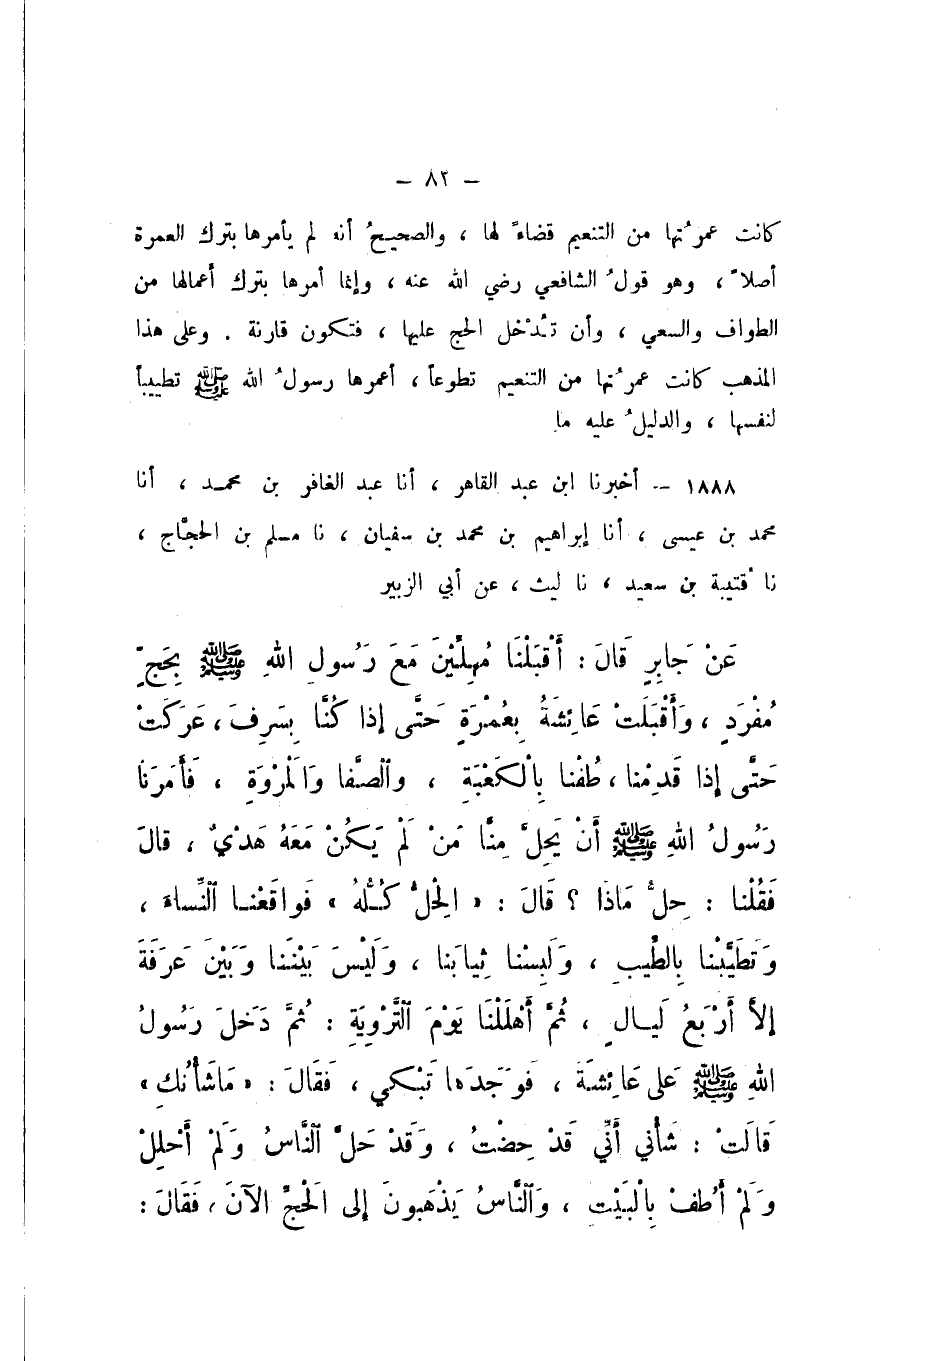 — ٨٢ —
كانت عمرُتها من التنعيم قضاءً لها ، والصحيحُ أنه لم يأمرها بترك العمرة
أصلاً ، وهو قولُ الشافعي رضي الله عنه ، وإنما أمرها بترك أعمالها من
الطواف والسعي ، وأن تُدْخل الحج عليها ، فتكون قارنة . وعلى هذا
المذهب كانت عمرُتها من التنعيم تطوعاً ، أعمرها رسولُ الله ﷺ تطييباً
لنفسها ، والدليلُ عليه ما
١٨٨٨ — أخبرنا ابن عبد القاهر ، أنا عبد الغافر بن محمد ، أنا
محمد بن عيسى ، أنا إبراهيم بن محمد بن سفيان ، نا مسلم بن الحجَّاج ،
نا قُتيبة بن سعيد ، نا ليث ، عن أبي الزبير
عَنْ جَابِرٍ قَالَ : أَقْبَلْنَا مُهِلِّيْنَ مَعَ رَسُولِ اللهِ ﷺ بِحَجٍّ
مُفْرَدٍ ، وَأَقْبَلَتْ عَائِشَةُ بِعُمْرَةٍ حَتَّى إذا كُنَّا بِسَرِفَ ، عَرَكَتْ
حَتَّى إذا قَدِمْنا ، طُفْنا بِالْكَعْبَةِ ، والصَّفا وَالْمَرْوَةِ ، فَأَمَرَنَا
رَسُولُ اللهِ ﷺ أَنْ يَحِلَّ مِنَّا مَنْ لَمْ يَكُنْ مَعَهُ هَدْيٌ ، قالَ
فَقُلْنا : حِلُّ مَاذَا ؟ قَالَ : « الحِلُّ كُلُّهُ » فَواقَعْنا النِّساءَ ،
وَتَطَيَّبْنا بِالطِّيبِ ، وَلَبِسْنا ثِيابَنا ، وَلَيْسَ بَيْنَنا وَبَيْنَ عَرَفَةَ
إلاَّ أَرْبَعُ لَيالٍ ، ثُمَّ أَهْلَلْنَا يَوْمَ التَّرْوِيَةِ : ثُمَّ دَخَلَ رَسُولُ
اللهِ ﷺ عَلى عَائِشَةَ ، فَوَجَدَها تَبْكي ، فَقَالَ : « مَا شَأْنُكِ »
قَالَتْ : شَأْني أَنِّي قَدْ حِضْتُ ، وَقَدْ حَلَّ النَّاسُ وَلَمْ أَحْلِلْ
وَلَمْ أَطُفْ بِالْبَيْتِ ، وَالنَّاسُ يَذْهَبونَ إلى الْحَجِّ الآنَ ، فَقَالَ :